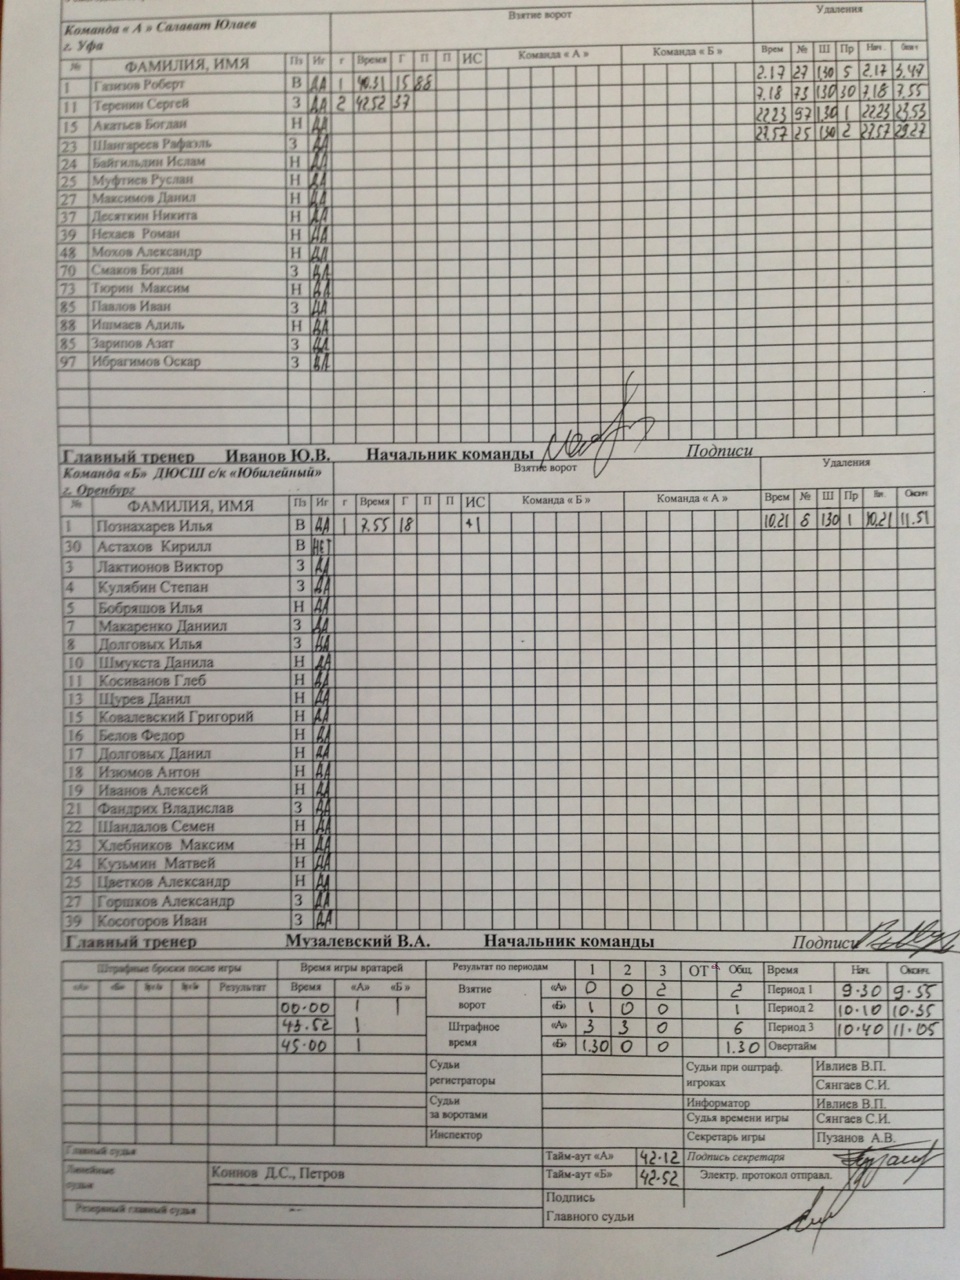 Команда « А » Салават Юлаев Взятие ворот Удаления
г. Уфа
№ ФАМИЛИЯ, ИМЯ Пз Иг г Время Г П П ИС Команда « А » Команда « Б » Врем № Ш Пр Нач. Оконч
1 Газизов Роберт В ДА 1 40.31 15 88 2.17 27 1.30 5 2.17 3.47
11 Теренин Сергей З ДА 2 42.52 37 7.18 73 1.30 30 7.18 7.55
15 Акатьев Богдан Н ДА 22.23 97 1.30 1 22.23 23.53
23 Шангареев Рафаэль З ДА 27.57 25 1.30 2 27.57 29.27
24 Байгильдин Ислам Н ДА
25 Муфтиев Руслан Н ДА
27 Максимов Данил Н ДА
37 Десяткин Никита Н ДА
39 Нехаев Роман Н ДА
48 Мохов Александр Н ДА
70 Смаков Богдан З ДА
73 Тюрин Максим Н ДА
85 Павлов Иван З ДА
88 Ишмаев Адиль Н ДА
85 Зарипов Азат З ДА
97 Ибрагимов Оскар З ДА
Главный тренер Иванов Ю.В. Начальник команды Подписи
Команда «Б» ДЮСШ с/к «Юбилейный» Взятие ворот Удаления
г. Оренбург
№ ФАМИЛИЯ, ИМЯ Пз Иг г Время Г П П ИС Команда « Б » Команда « А » Врем № Ш Пр Нач. Оконч
1 Познахарев Илья В ДА 1 7.55 18 +1 10.21 8 1.30 1 10.21 11.51
30 Астахов Кирилл В НЕТ
3 Лактионов Виктор З ДА
4 Кулябин Степан З ДА
5 Бобряшов Илья Н ДА
7 Макаренко Даниил З ДА
8 Долговых Илья З ДА
10 Шмукста Данила Н ДА
11 Косиванов Глеб Н ДА
13 Щурев Данил Н ДА
15 Ковалевский Григорий Н ДА
16 Белов Федор Н ДА
17 Долговых Данил Н ДА
18 Изюмов Антон Н ДА
19 Иванов Алексей Н ДА
21 Фандрих Владислав З ДА
22 Шандалов Семен Н ДА
23 Хлебников Максим Н ДА
24 Кузьмин Матвей Н ДА
25 Цветков Александр Н ДА
27 Горшков Александр З ДА
39 Косогоров Иван З ДА
Главный тренер Музалевский В.А. Начальник команды Подписи
Штрафные броски после игры Время игры вратарей Результат по периодам 1 2 3 ОТ Общ. Время Нач. Оконч.
«А» «Б» Результат Время «А» «Б» Взятие ворот «А» 0 0 2 2 Период 1 9.30 9.55
00.00 1 1 «Б» 1 0 0 1 Период 2 10.10 10.35
43.52 1 Штрафное время «А» 3 3 0 6 Период 3 10.40 11.05
45.00 1 «Б» 1.30 0 0 1.30 Овертайм
Судьи регистраторы Судьи при оштраф. игроках Ивлиев В.П.
Сянгаев С.И.
Судьи за воротами Информатор Ивлиев В.П.
Судья времени игры Сянгаев С.И.
Инспектор Секретарь игры Пузанов А.В.
Главный судья Тайм-аут «А» 42.12 Подпись секретаря
Линейные судьи Коннов Д.С., Петров Тайм-аут «Б» 42.52 Электр. протокол отправл.
Резервный главный судья Подпись
Главного судьи